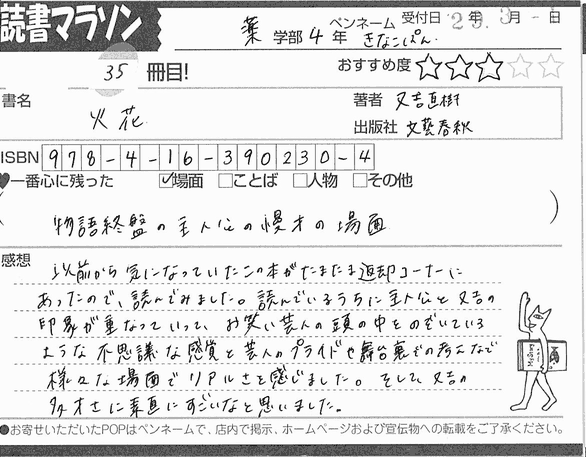 読書マラソン
薬 学部 4 年 ペンネーム きなこぱん 受付日 29年 3月 日
35 冊目!
おすすめ度 ★★★☆☆
書名 火花
著者 又吉直樹
出版社 文藝春秋
ISBN 978-4-16-390230-4
♥一番心に残った ☑場面 □ことば □人物 □その他
物語終盤の主人公の漫才の場面
感想
以前から気になっていたこの本がたまたま返却コーナーに
あったので、読んでみました。読んでいるうちに主人公と又吉の
印象が重なっていって、お笑い芸人の頭の中をのぞいている
ような不思議な感覚と芸人のプライドや舞台裏での考えなど
様々な場面でリアルさを感じました。そして又吉の
多才さに素直にすごいなと思いました。
●お寄せいただいたPOPはペンネームで、店内で掲示、ホームページおよび宣伝物への転載をご了承ください。